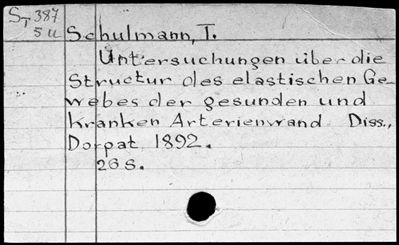 ST 387
5 u
Schulmann, T.
Untersuchungen über die
Structur des elastischen Ge-
webes der gesunden und
kranken Arterienwand. Diss.,
Dorpat 1892.
26 S.